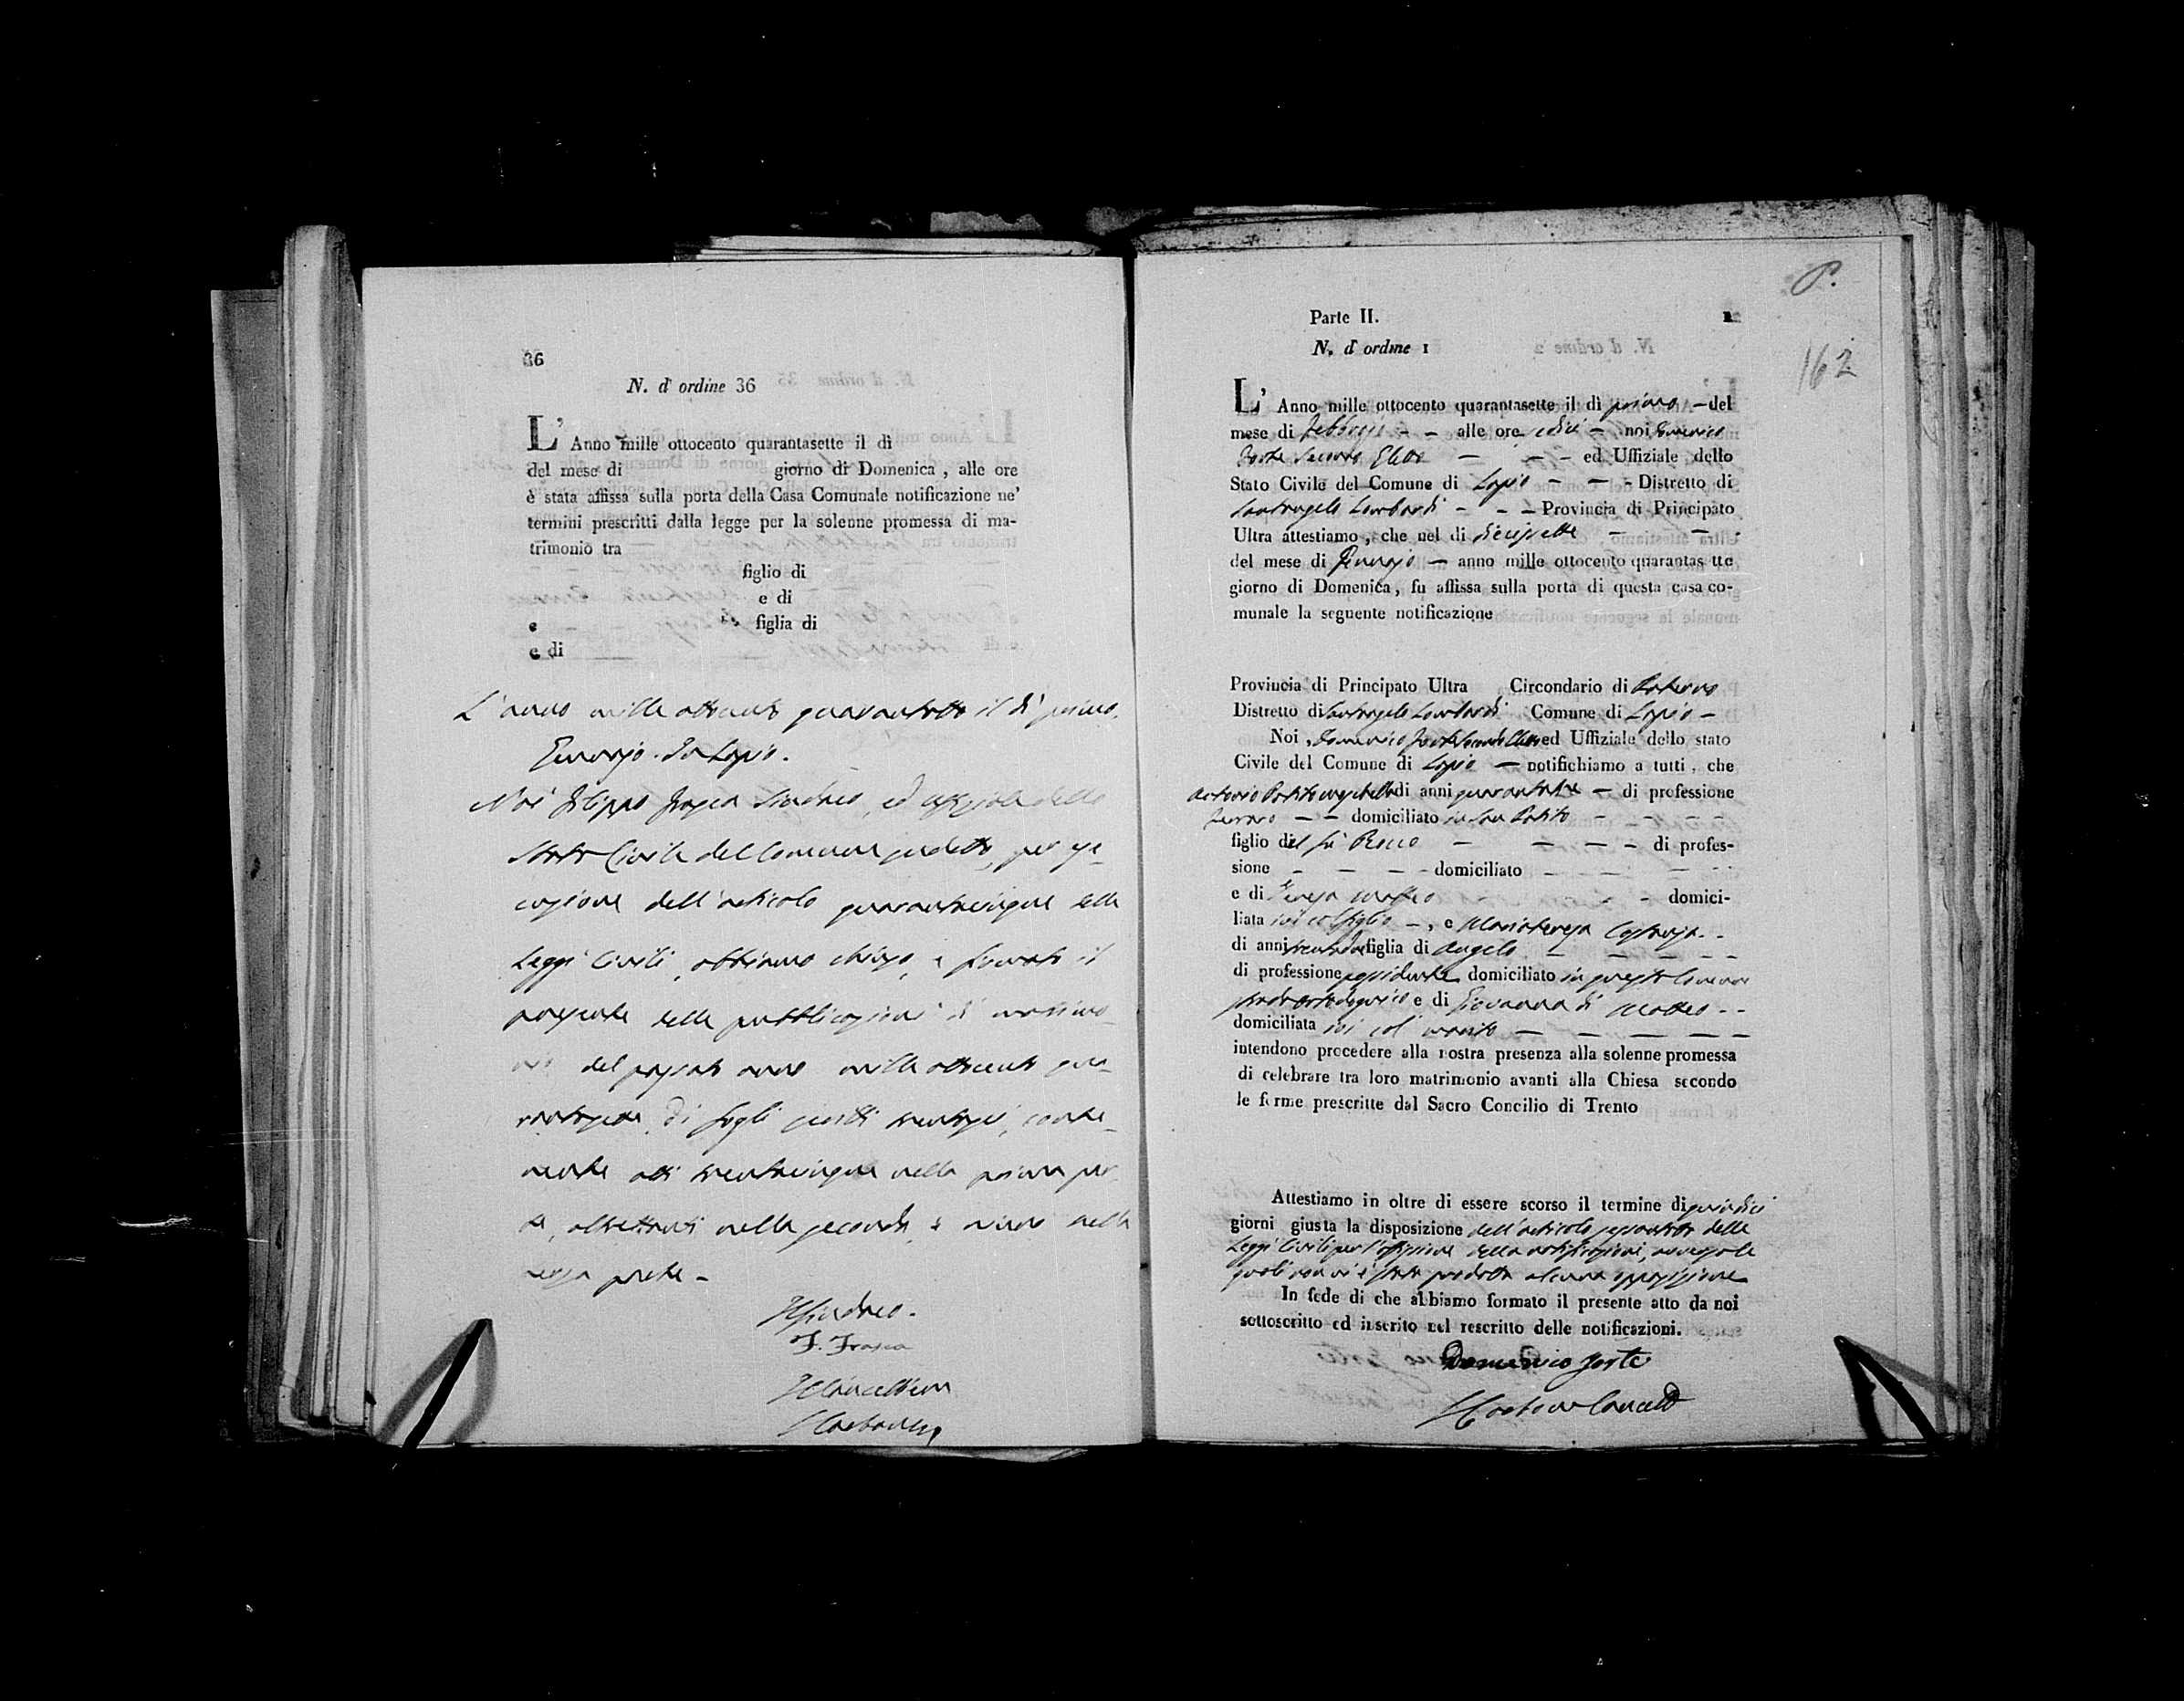 36
N. d' ordine 36
L' Anno mille ottocento quarantasette il dì
del mese di giorno di Domenica, alle ore
è stata affissa sulla porta della Casa Comunale notificazione ne'
termini prescritti dalla legge per la solenne promessa di ma-
trimonio tra
figlio di
e di
e figlia di
e di
L'anno mille ottocento quarantotto il dì primo
Gennajo. In Lapio.
Noi Filippo Frasca Sindaco, ed uffiziale dello
Stato Civile del Comune sudetto, per ese-
cuzione dell'articolo quarantacinque delle
Leggi Civili, abbiamo chiuso, e firmato il
presente delle pubblicazioni di matrimo-
nio del passato anno mille ottocento qua-
rantasette, di fogli scritti trentasei, conte-
nente atti trentacinque nella prima par-
te, altrettanti nella seconda, e niuno nella
terza parte -
Il Sindaco.
F. Frasca
Il Cancelliere
Parte II.
N. d' ordine 1
P.
162
L' Anno mille ottocento quarantasette il dì primo - del
mese di Febbrajo - - alle ore - noi Domenico
Forte Secondo Eletto - - - ed Uffiziale dello
Stato Civile del Comune di Lapio - - - Distretto di
Santangelo Lombardi - - - Provincia di Principato
Ultra attestiamo, che nel dì diecisette - -
del mese di Gennajo - anno mille ottocento quarantas tte
giorno di Domenica, fu affissa sulla porta di questa casa co-
munale la seguente notificazione
Provincia di Principato Ultra Circondario di Paterno
Distretto di Santangelo Lombardi Comune di Lapio -
Noi, Domenico Forte Secondo Eletto ed Uffiziale dello stato
Civile del Comune di Lapio - notifichiamo a tutti, che
Antonio Potito di anni - di professione
Ferraro - - domiciliato in San Potito - - - -
figlio del fu Rocco - - - - di profes-
sione - - - - domiciliato - - - -
e di Teresa Maffeo - - domici-
liata ivi col figlio -, e Mariateresa - -
di anni figlia di Angelo - - - - -
di professione possidente domiciliato in questo Comune
strada e di Giovanna di Matteo - -
domiciliata ivi col marito - - - - -
intendono procedere alla nostra presenza alla solenne promessa
di celebrare tra loro matrimonio avanti alla Chiesa secondo
le forme prescritte dal Sacro Concilio di Trento
Attestiamo in oltre di essere scorso il termine di quindici
giorni giusta la disposizione dell'articolo sessantotto delle
Leggi Civili per l'affissione della notificazione,
quali non vi è stata prodotta alcuna opposizione
In fede di che abbiamo formato il presente atto da noi
sottoscritto ed inserito nel rescritto delle notificazioni.
Domenico Forte